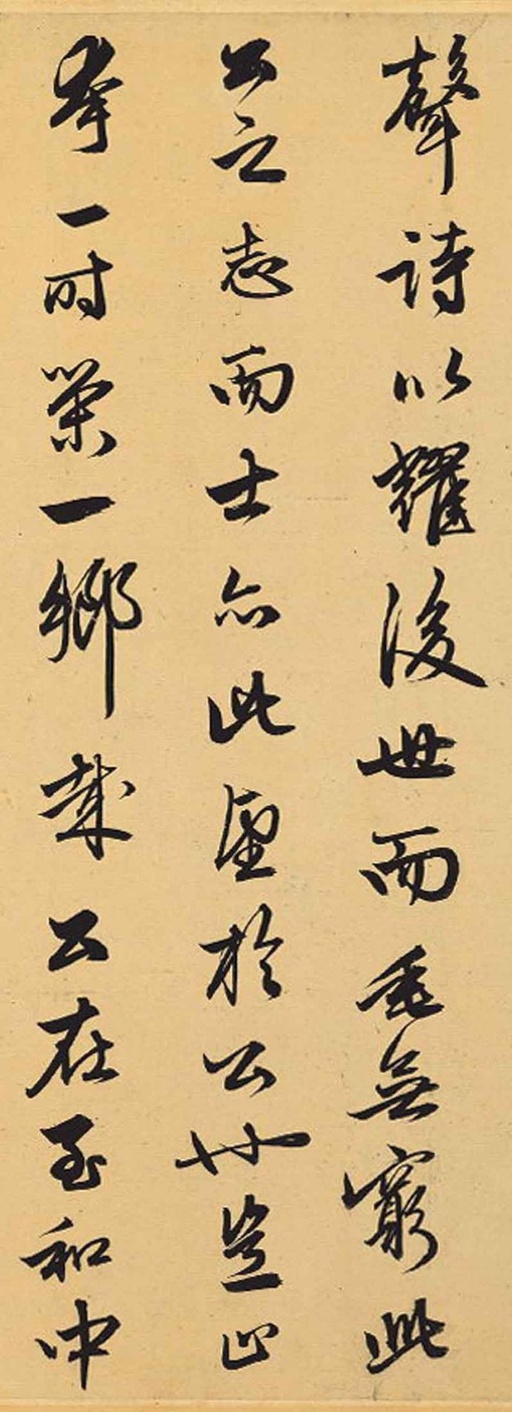 聲詩以耀後世而垂無窮此
公之志而士亦此望於公也豈止
夸一时榮一鄉哉公在至和中